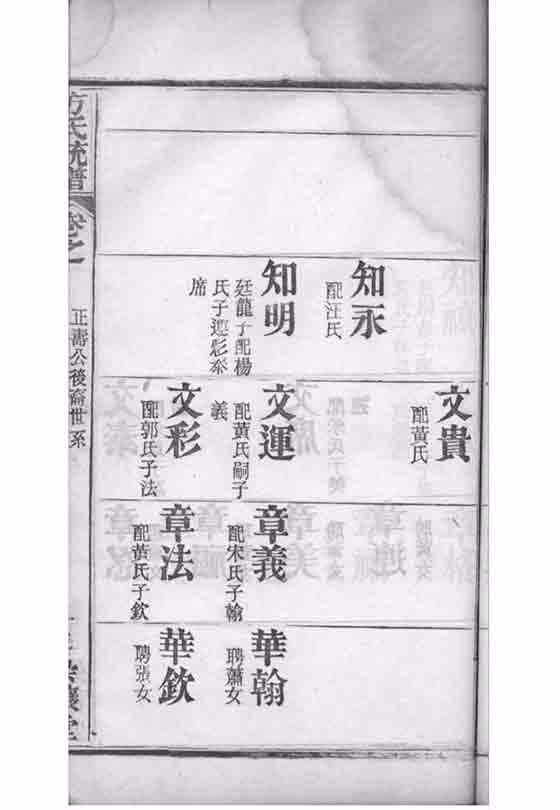 知永
配汪氏
知明
廷龍子配楊
氏子運彩泰
席
文貴
配黃氏
文運
配黃氏嗣子
義
文彩
配郭氏子法
章義
配宋氏子翰
章法
配黃氏子欽
華翰
聘蕭女
華欽
聘張女
方氏統譜
卷之一
正壽公後裔世系